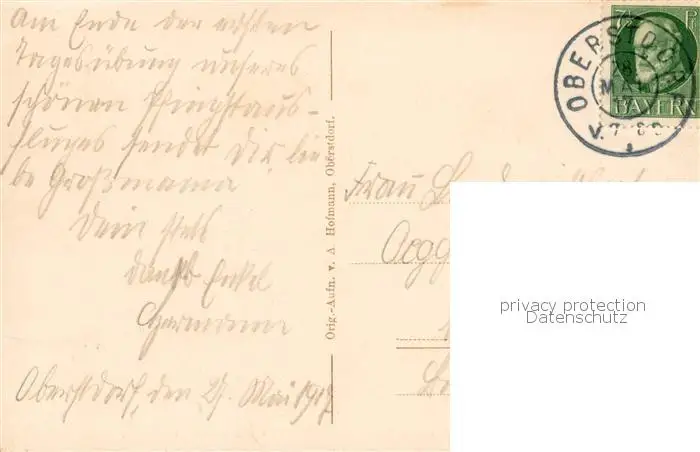 Am Ende der ersten
Tagesübung unseres
schönen Pfingstaus-
fluges sendet Dir, lie-
be Großmama
Dein stets
dankb. Enkel
Hermann
Oberstdorf, den 27. Mai 1917
Orig.-Aufn. v. A. Hofmann, Oberstdorf.
7½ Pf
BAYERN
OBERSTDORF
28
MAI
V. 7-8
Frau
privacy protection
Datenschutz